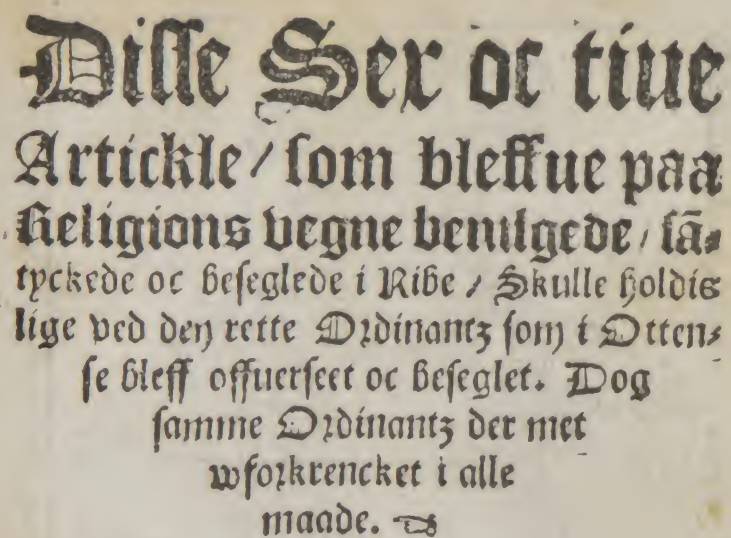 Disse Sex oc tiue
Artickle / som bleffue paa
Religions vegne beuilgede / sā⸗
tyckede oc beseglede i Ribe / Skulle holdis
lige ved den rette Ordinantz som i Otten⸗
se bleff offuerseet oc beseglet. Dog
samme Ordinantz der met
wforkrencket i alle
maade. ☜